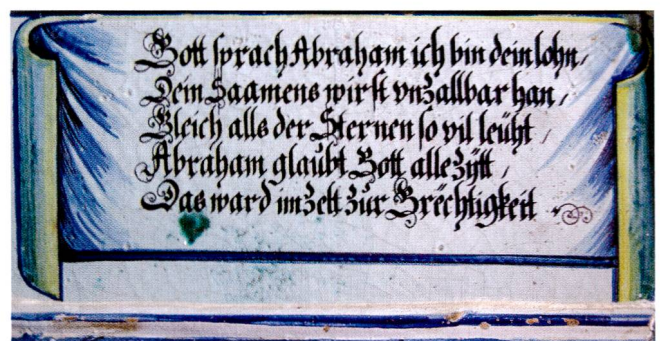 Gott sprach Abraham ich bin dein lohn,
Dein Saamens wirst vnzallbar han,
Gleich alls der Sternen so vil leüht,
Abraham glaubt Gott alle zÿtt,
Das ward im zelt zur Grëchtigkeit